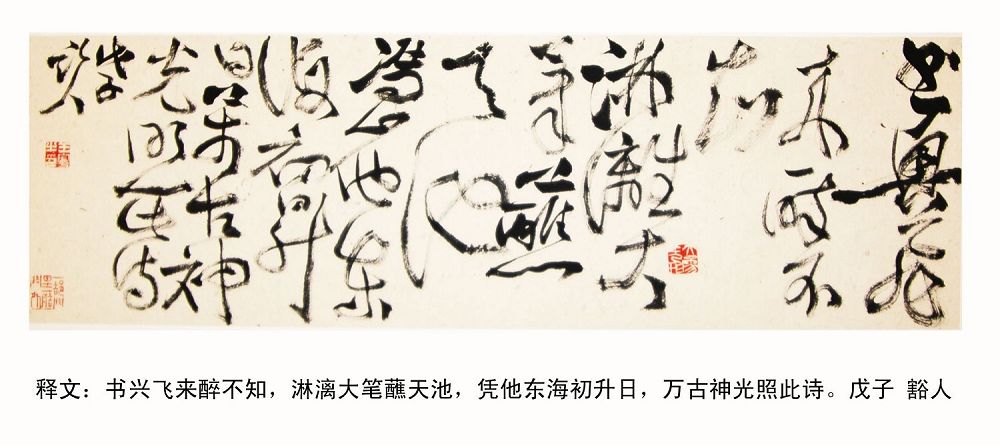 书興飛
来醉不
知
淋漓大
筆蘸
天池
憑他东
海初升
日万古神
光照此诗
戊子
豁人
释文：书兴飞来醉不知，淋漓大笔蘸天池，凭他东海初升日，万古神光照此诗。戊子 豁人